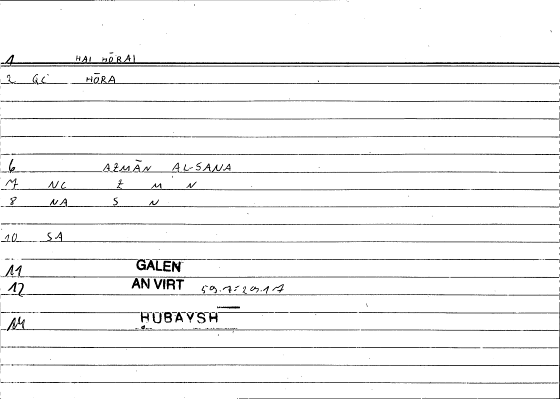 1 HAI HŌRAI
2 GC HŌRA
6 AZMĀN AL-SANA
7 NC Z M N
8 NA S N
10 SA
11 GALEN
12 AN VIRT 59.7; 29.17
14 ḤUBAYSH